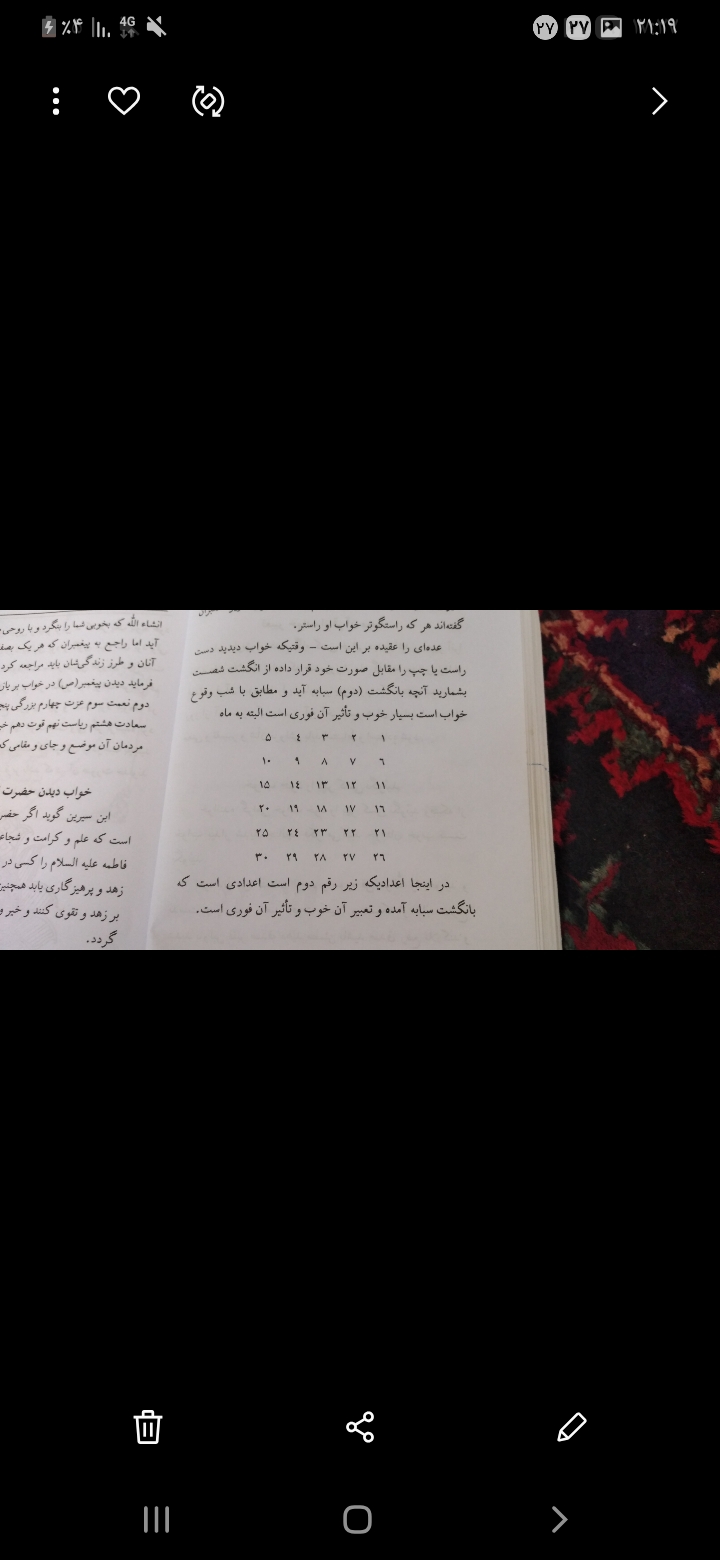 ٪۴ 4G ۲۷ ۲۷ ۲۱:۱۹
گفته‌اند هر که راستگوتر خواب او راستر.
عده‌ای را عقیده بر این است – وقتیکه خواب دیدید دست
راست یا چپ را مقابل صورت خود قرار داده از انگشت شصت
بشمارید آنچه بانگشت (دوم) سبابه آید و مطابق با شب وقوع
خواب است بسیار خوب و تأثیر آن فوری است البته به ماه
۱ ۲ ۳ ٤ ۵
٦ ۷ ۸ ۹ ۱۰
۱۱ ۱۲ ۱۳ ۱٤ ۱۵
۱٦ ۱۷ ۱۸ ۱۹ ۲۰
۲۱ ۲۲ ۲۳ ۲٤ ۲۵
۲٦ ۲۷ ۲۸ ۲۹ ۳۰
در اینجا اعدادیکه زیر رقم دوم است اعدادی است که
بانگشت سبابه آمده و تعبیر آن خوب و تأثیر آن فوری است.
انشاء الله که بخوبی شما را بنگرد و با روحی
آید اما راجع به پیغمبران که هر یک
آنان و طرز زندگی‌شان باید مراجعه کرد
فرماید دیدن پیغمبر(ص) در خواب بر
دوم نعمت سوم عزت چهارم بزرگی
سعادت هشتم ریاست نهم قوت دهم
مردمان آن موضع و جای و مقامی که
خواب دیدن حضرت
ابن سیرین گوید اگر
است که علم و کرامت و
فاطمه علیه السلام را کسی در
زهد و پرهیزگاری یابد
بر زهد و تقوی کنند و خیر و
گردد.